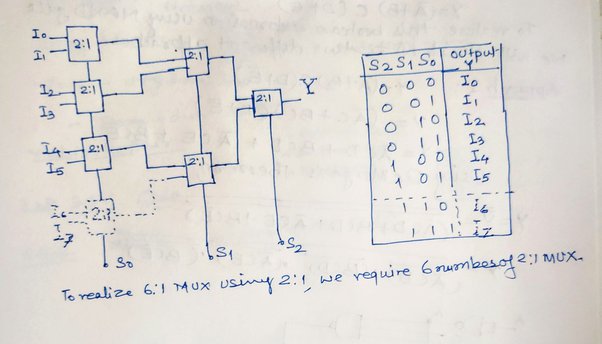 I0
I1
2:1
I2
I3
2:1
I4
I5
2:1
I6
I7
2:1
S0
2:1
2:1
S1
2:1
Y
S2
S2 S1 S0 output Y
0 0 0 I0
0 0 1 I1
0 1 0 I2
0 1 1 I3
1 0 0 I4
1 0 1 I5
1 1 0 i6
1 1 i7
To realize 6:1 MUX using 2:1, we require 6 numbers of 2:1 MUX.